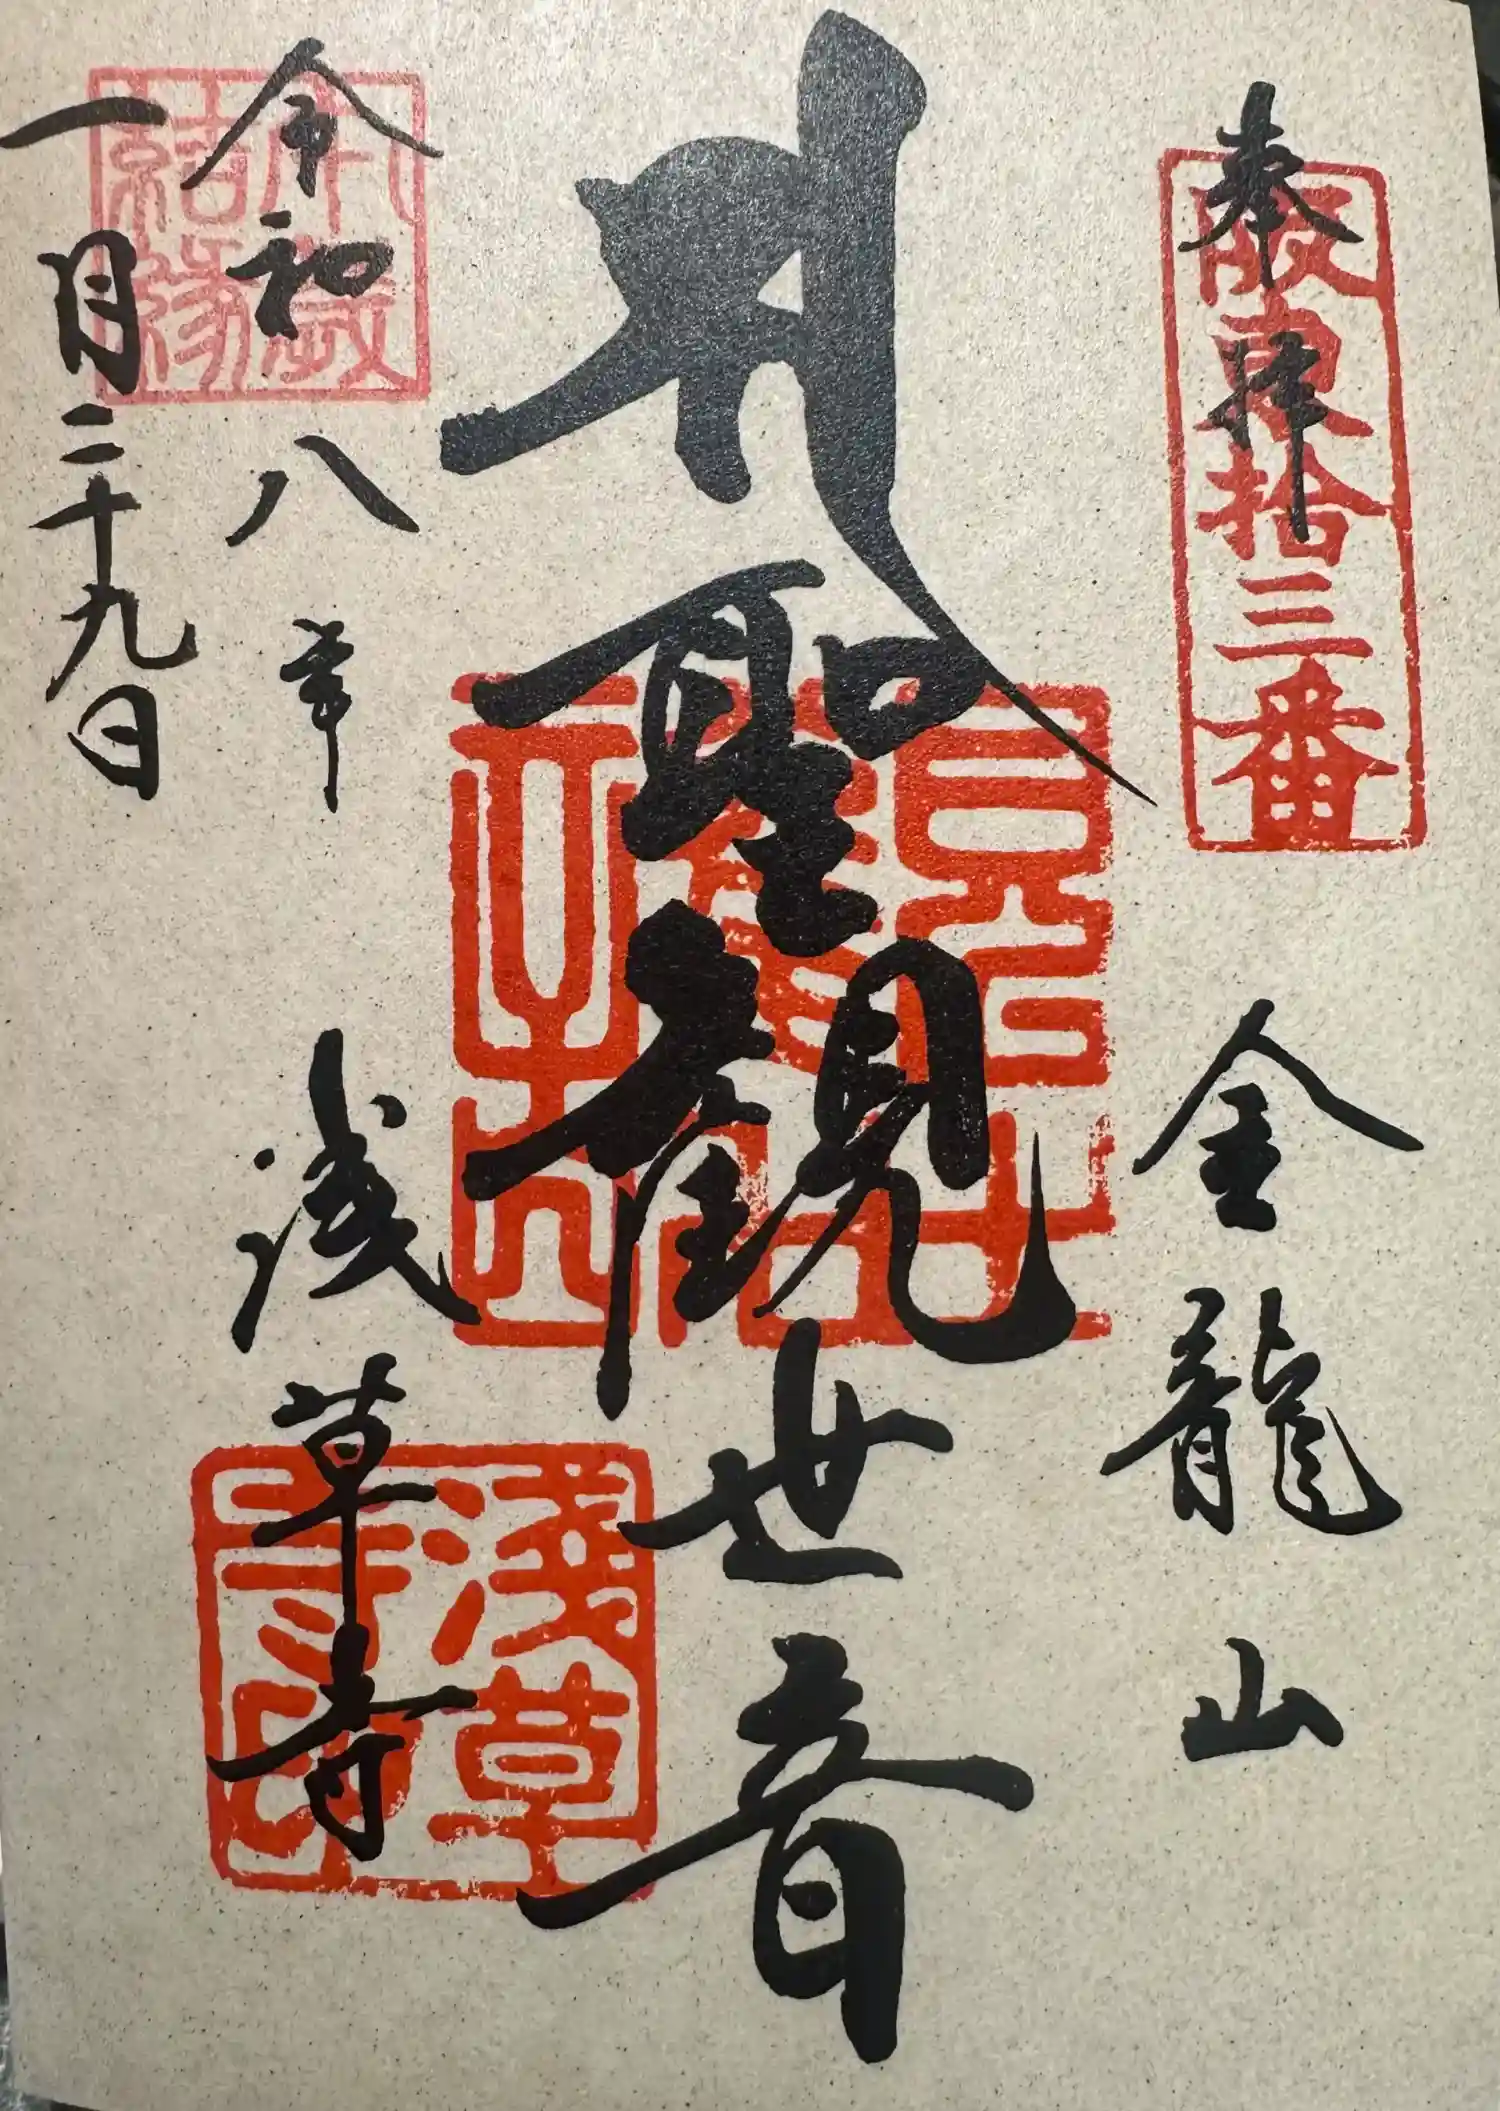 奉拝
坂東拾三番
金龍山
聖観世音
浅草寺
淺草寺印
令和八年
一月二十九日